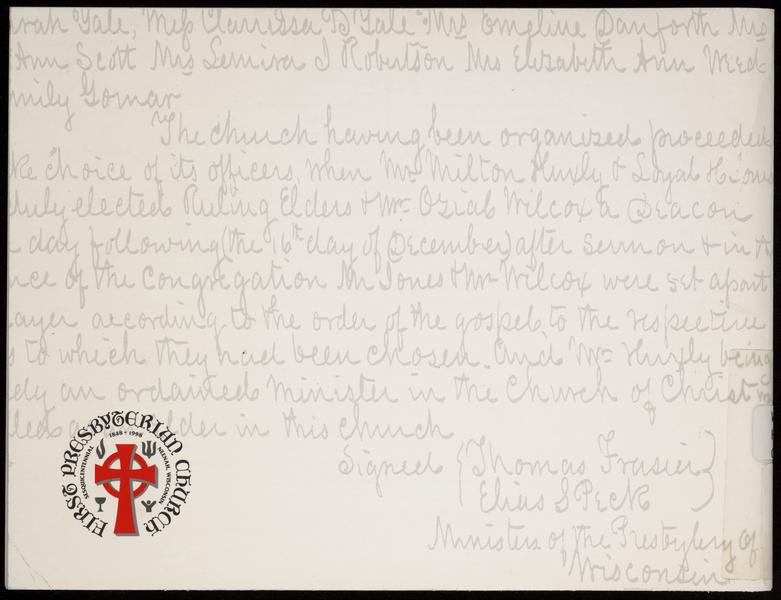 rah Yale, Miss Clarrissa B Yale Mrs Emeline Danforth Mrs
Ann Scott Mrs Lemira J Robertson Mrs Elizabeth Ann Weed
mily Gomar
The church having been organized proceeded
ke choice of its officers, when Mr Milton Huxly & Loyal H Jones
duly elected Ruling Elders & Mr Oziab Wilcox a Deacon
day following (the 16th day of December) after sermon & in th
nce of the congregation Mr Jones & Mr Wilcox were set apart
ayer according to the order of the gospel, to the respective
s to which they had been chosen. And Mr Huxly being
dy an ordained minister in the Church of Christ w
led an elder in this church
Signed { Thomas Frasier }
Elias S Peck
Ministers of the Presbytery of
Wisconsin
FIRST PRESBYTERIAN CHURCH
1848 • 1998
SESQUICENTENNIAL
NEENAH, WISCONSIN